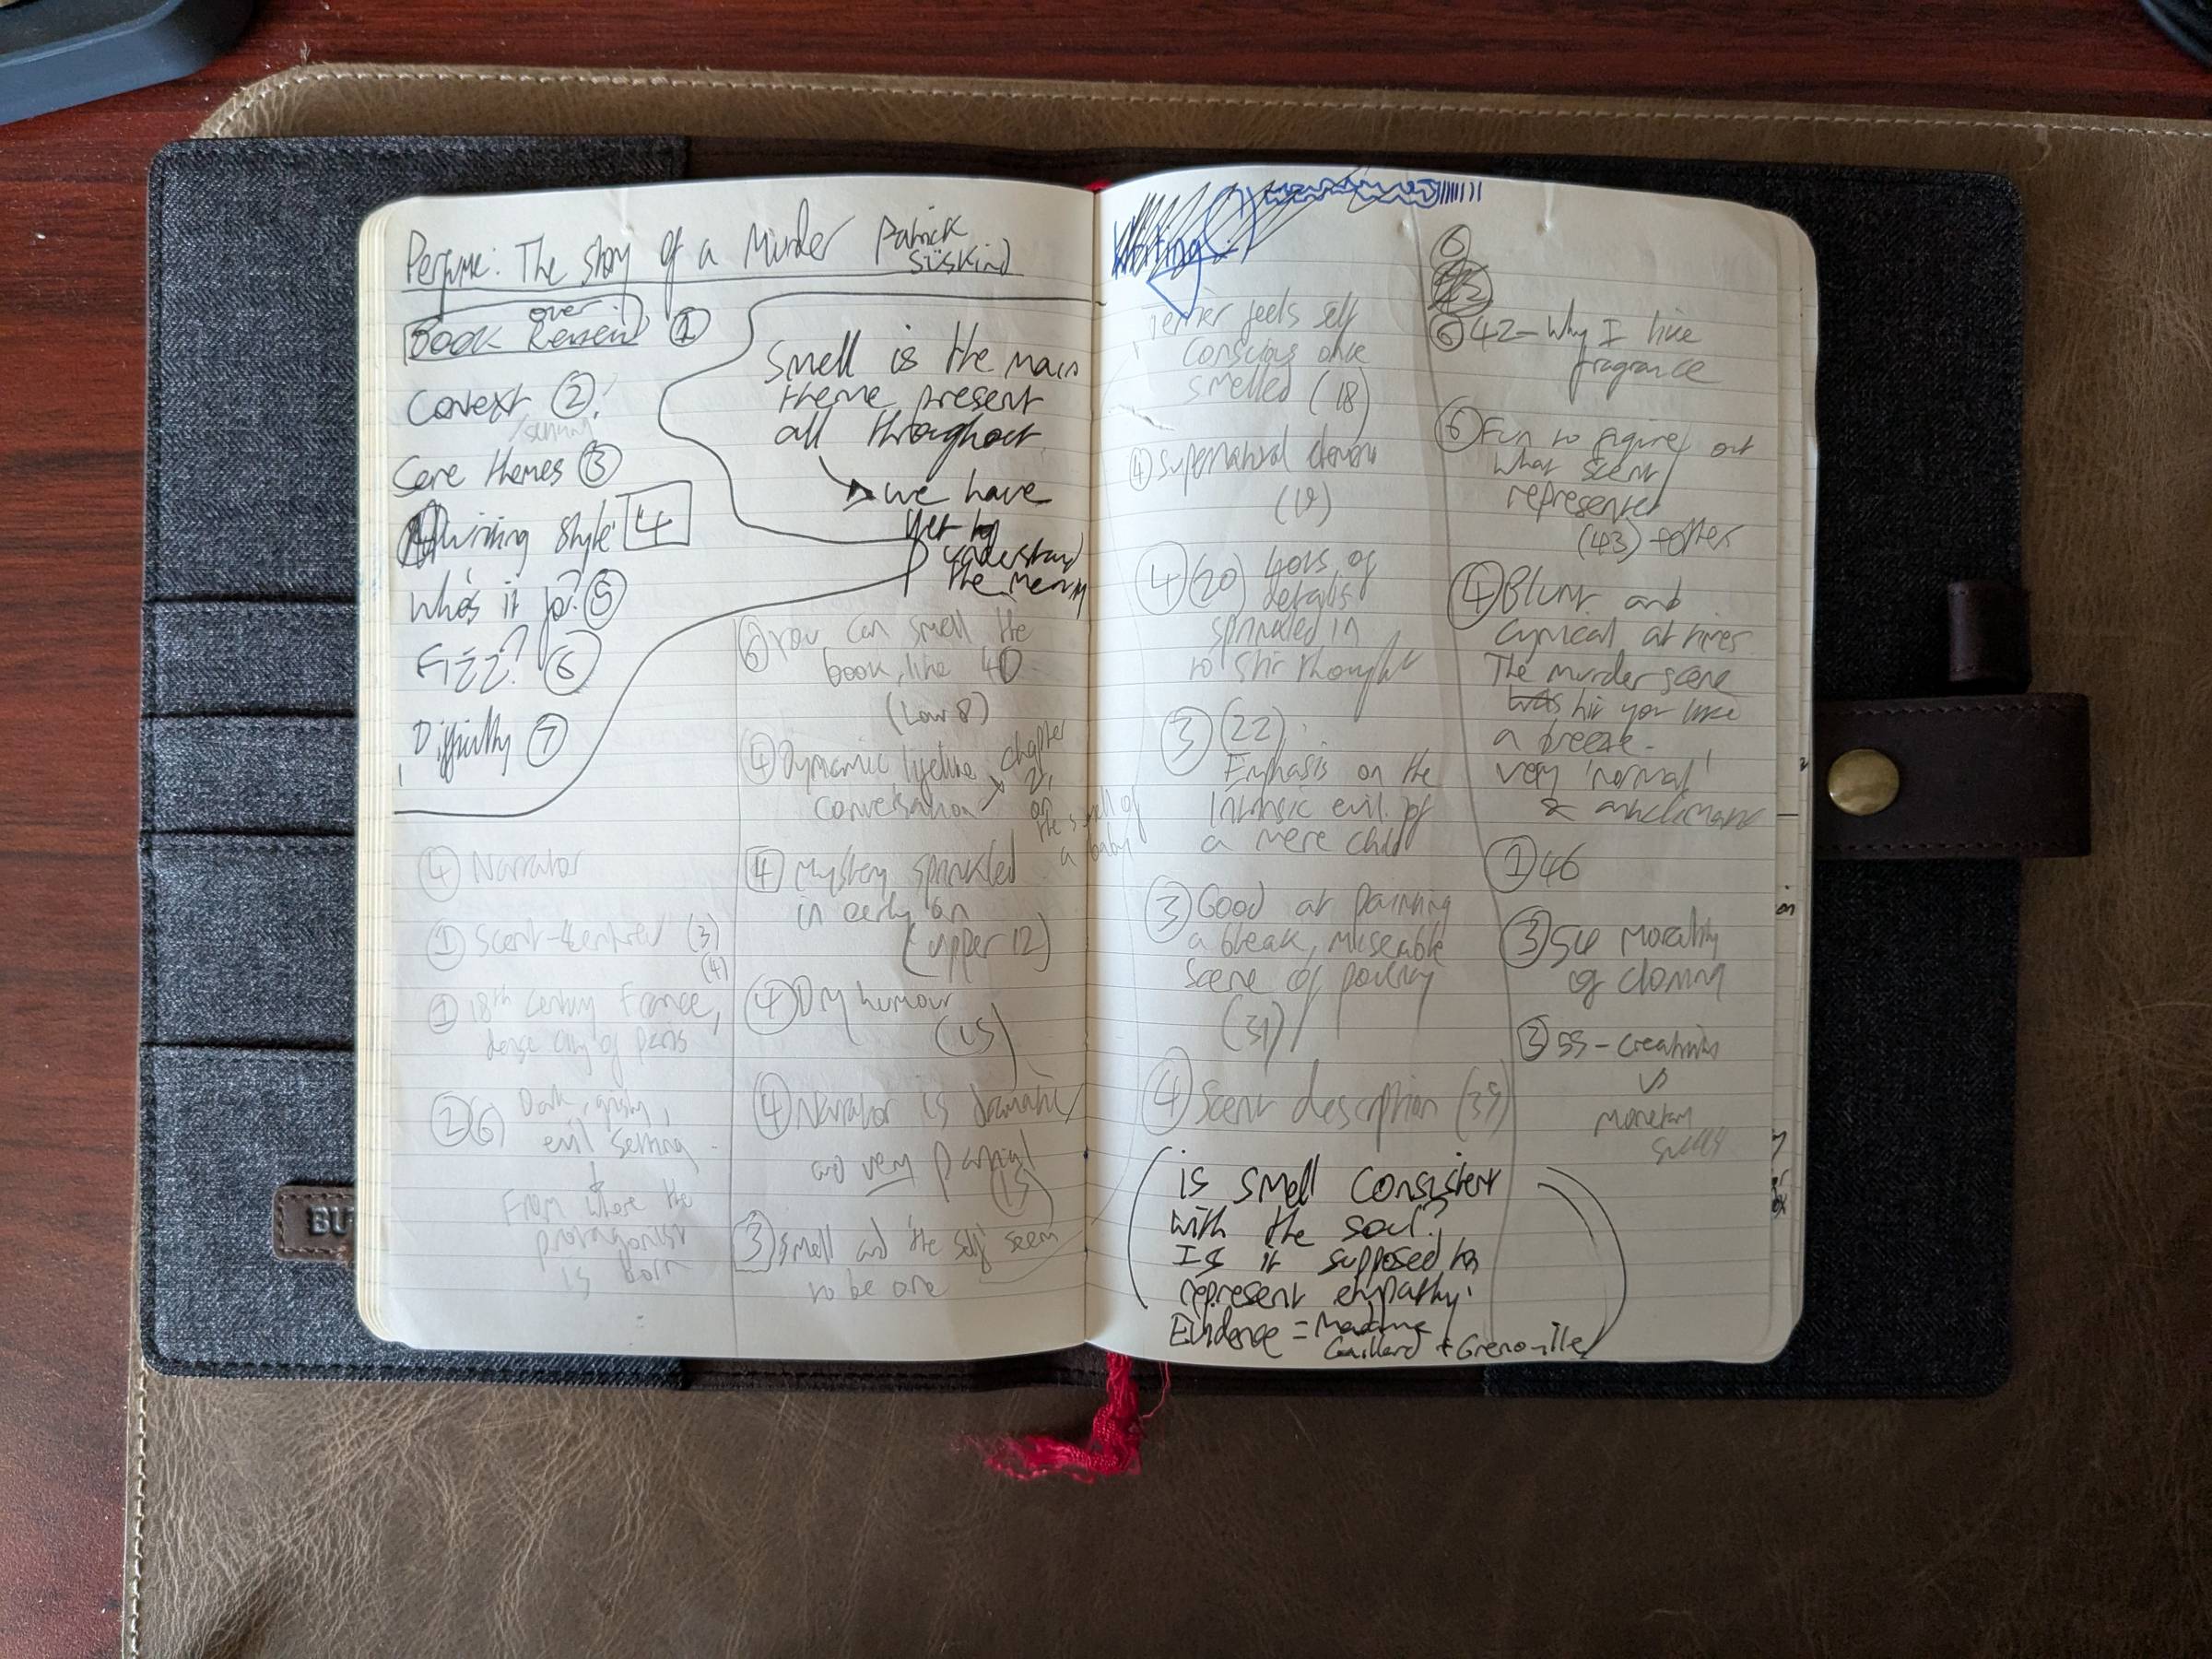 Perfume: The story of a Murder Patrick
Süskind
over
Book Review ①
Context ②
/setting
Core themes ③
Writing style 4
Who's it for? ⑤
Fizz? ⑥
Difficulty ⑦
Smell is the main
theme present
all throughout
we have
yet to
understand
the meaning
④ Narrator
① Scent-centred (3)
(4)
① 18th Century France,
dense city of Paris
② ⑥ Dark, grimy,
evil setting
From where the
protagonist
is born
⑥ You can smell the
book, like 4D
(Low 8)
④ Dynamic lifelike chapter
conversation
on
the smell of
a baby
4 Mystery sprinkled
in early on
(upper 12)
④ Dry humour
(15)
④ Narrator is dramatic
and very partial
(15)
3 Smell and 'the self' seem
to be one
Writing
Terrier feels self
conscious once
smelled (18)
④ Supernatural
(19)
④ (20) Lots of
details
sprinkled in
to stir thought
③ (22)
Emphasis on the
intrinsic evil of
a mere child
③ Good at painting
a bleak, miserable
scene of poverty
(31)
④ Scent description (39)
is smell consistent
with the soul?
Is it supposed to
represent empathy?
Evidence = Madame
Gaillard + Grenouille
6
⑥ 42 - Why I like
fragrance
⑥ Fun to figure out
what scent
represents
(43)
④ Blunt and
cynical at times
The murder scene
was hit you like
a breeze.
very 'normal'
& anticlimactic
① 46
③ 54 Morality
of cloning
③ 55 - Creativity
vs
monetary
BU